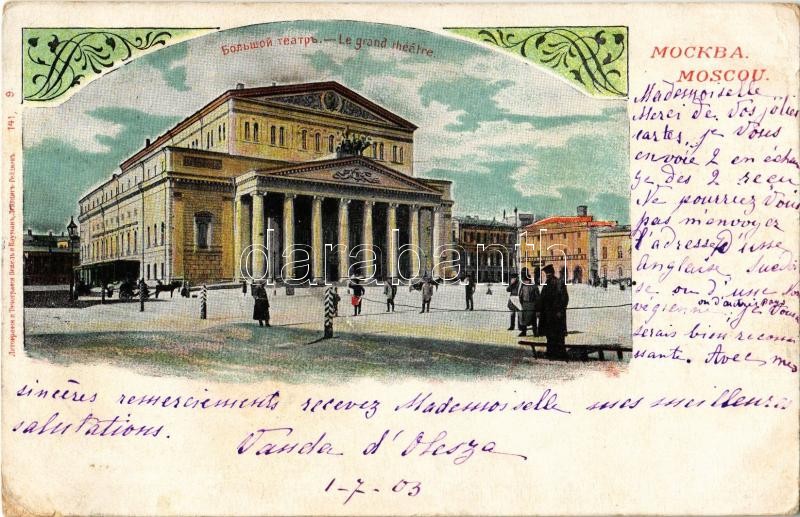 Большой театръ. — Le grand théâtre.
МОСКВА.
MOSCOU.
Mademoiselle
Merci de Vos jolies
cartes, je Vous
envoie 2 en échan
ge des 2 reçu
Ne pourriez Vous
pas m'envoyez
l'adresse d'une
Anglaise, Suedoi
se ou d'une No
ou d'autres pays
végienne, je Vous
serais bien reconnai
ssante. Avec mes
sincères remerciements recevez Mademoiselle mes meilleures
salutations.
Vanda d'Olesza
1-7-03
141, 9
darabanth